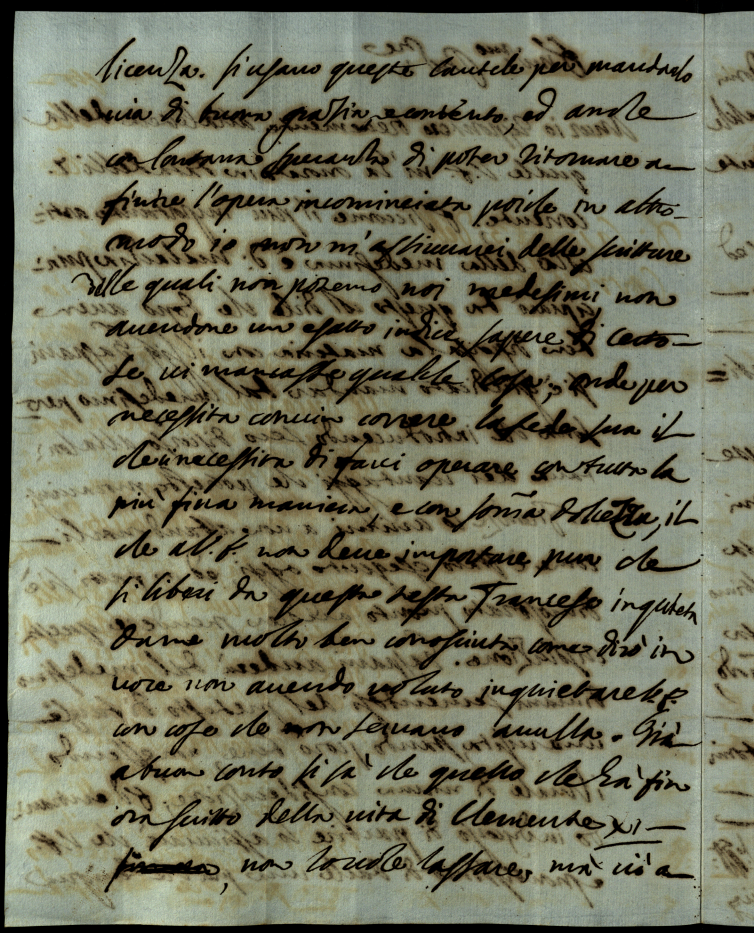 licenza. si usano queste Cautele per mandarlo
via di buona grazia, e contento, ed anche
co lontana speranza di poter ritornare a
finire l'opera incominciata poiche in altro
modo io non m'assicurarei delle scritture
delle quali non potemo noi medesimi non
avendone un esatto indice, sapere di certo
se vi mancasse qualche cosa, onde per
necessità convien correre la fede sua il
che ci necessita di farci operare con tutta la
più fina maniera, e con som̃a dolcezza, il
che al P. non deve importare pur che
si liberi da questa testa Francese inquieta
da me molto ben conosciuta come dirò in
voce non avendo voluto inquietarele
con cose che non servano a nulla. Già
a buon conto si sà che quello che hà fin
ora scritto della vita di Clemente XI
, non lo vole lassare, mà vi a